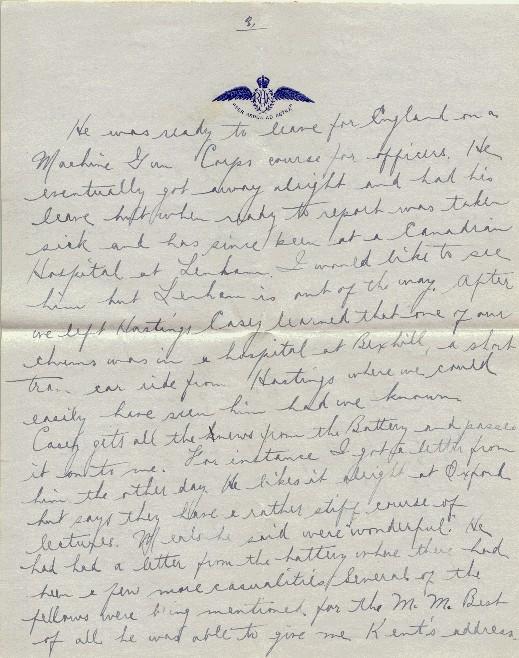 3.
PER ARDUA AD ASTRA
He was ready to leave for England on a
Machine Gun Corps course for officers. He
eventually got away alright and had his
leave but when ready to report was taken
sick and has since been at a Canadian
Hospital at Lenham. I would like to see
him but Lenham is out of the way. After
we left Hastings Casey learned that one of our
chums was in a hospital at Bexhill, a short
tram car ride from Hastings where we could
easily have seen him had we known
Casey gets all the news from the Battery and passes
it on to me. For instance I got a letter from
him the other day. He likes it alright at Oxford
but says they have a rather stiff course of
lectures. he said were "wonderful". He
had had a letter from the battery where there had
been a few more casualities. Several of the
fellows were being mentioned for the M. M. Best
of all he was able to give me Kent's address.